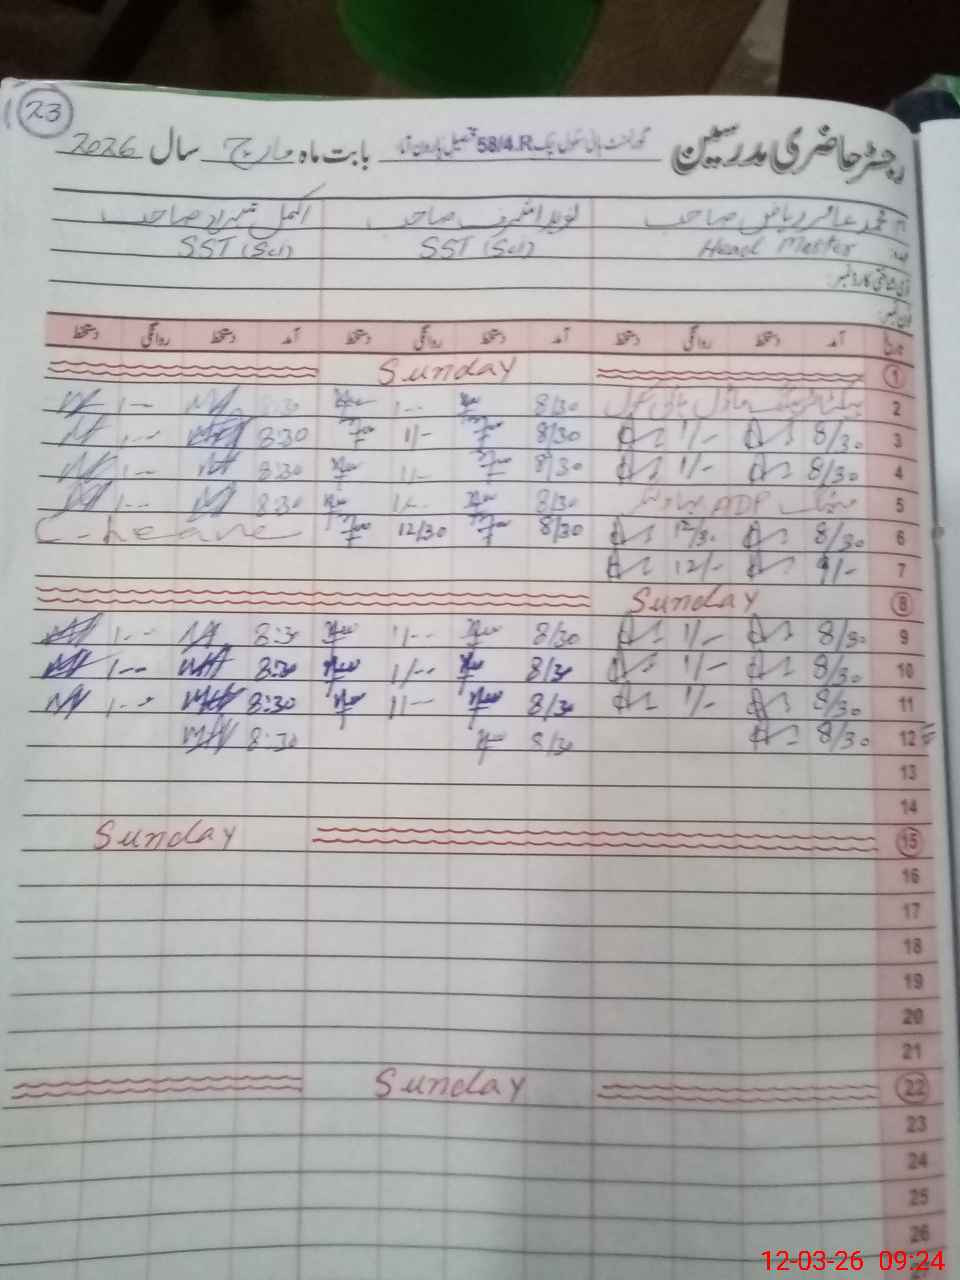 23
رجسٹر حاضری مدرسین گورنمنٹ ہائی سکول چک 58/4.R تحصیل ہارون آباد بابت ماہ مارچ سال 2026
محمد عامر ریاض صاحب نوید اشرف صاحب اکمل صاحب
عہدہ Head Master SST (Sci) SST (Sci)
شناختی کارڈ نمبر
فون نمبر
تاریخ آمد دستخط روانگی دستخط آمد دستخط روانگی دستخط آمد دستخط روانگی دستخط
1 Sunday
2 8/30 1-- 8:30 1--
3 8/30 1/- 8/30 1/- 8:30 1--
4 8/30 1/- 8/30 1/- 8:30 1--
5 ADP 8/30 1/-- 8:30 1--
6 8/30 12/30 8/30 12/30 C-Leave
7 9/- 12/-
8 Sunday
9 8/30 1/- 8/30 1/-- 8:30 1--
10 8/30 1/- 8/30 1/-- 8:30 1--
11 8/30 1/- 8/30 1/-- 8:30 1--
12 8/30 8/30 8:30
13
14
15 Sunday
16
17
18
19
20
21
22 Sunday
23
24
25
26
12-03-26 09:24